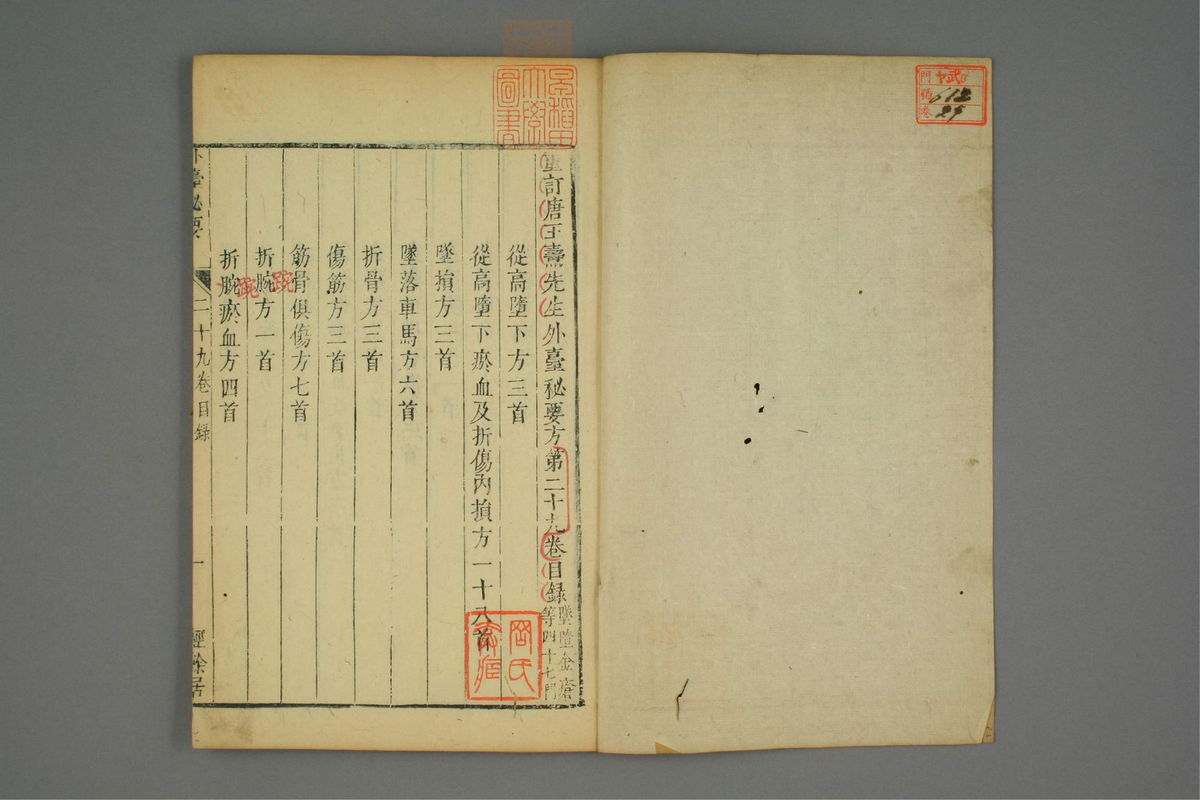 門 ヤ武09
號 612
巻 29
早稲田大學圖書
重訂唐王燾先生外臺秘要方第二十九卷目錄 墜墮金瘡等四十七門
從高墮下方三首
從高墮下瘀血及折傷內損方一十八首
墜損方三首
墜落車馬方六首
折骨方三首
傷筋方三首
筋骨俱傷方七首
折腕方一首
踠
折腕瘀血方四首
踠
外臺秘要 二十九卷目錄 一 經餘居